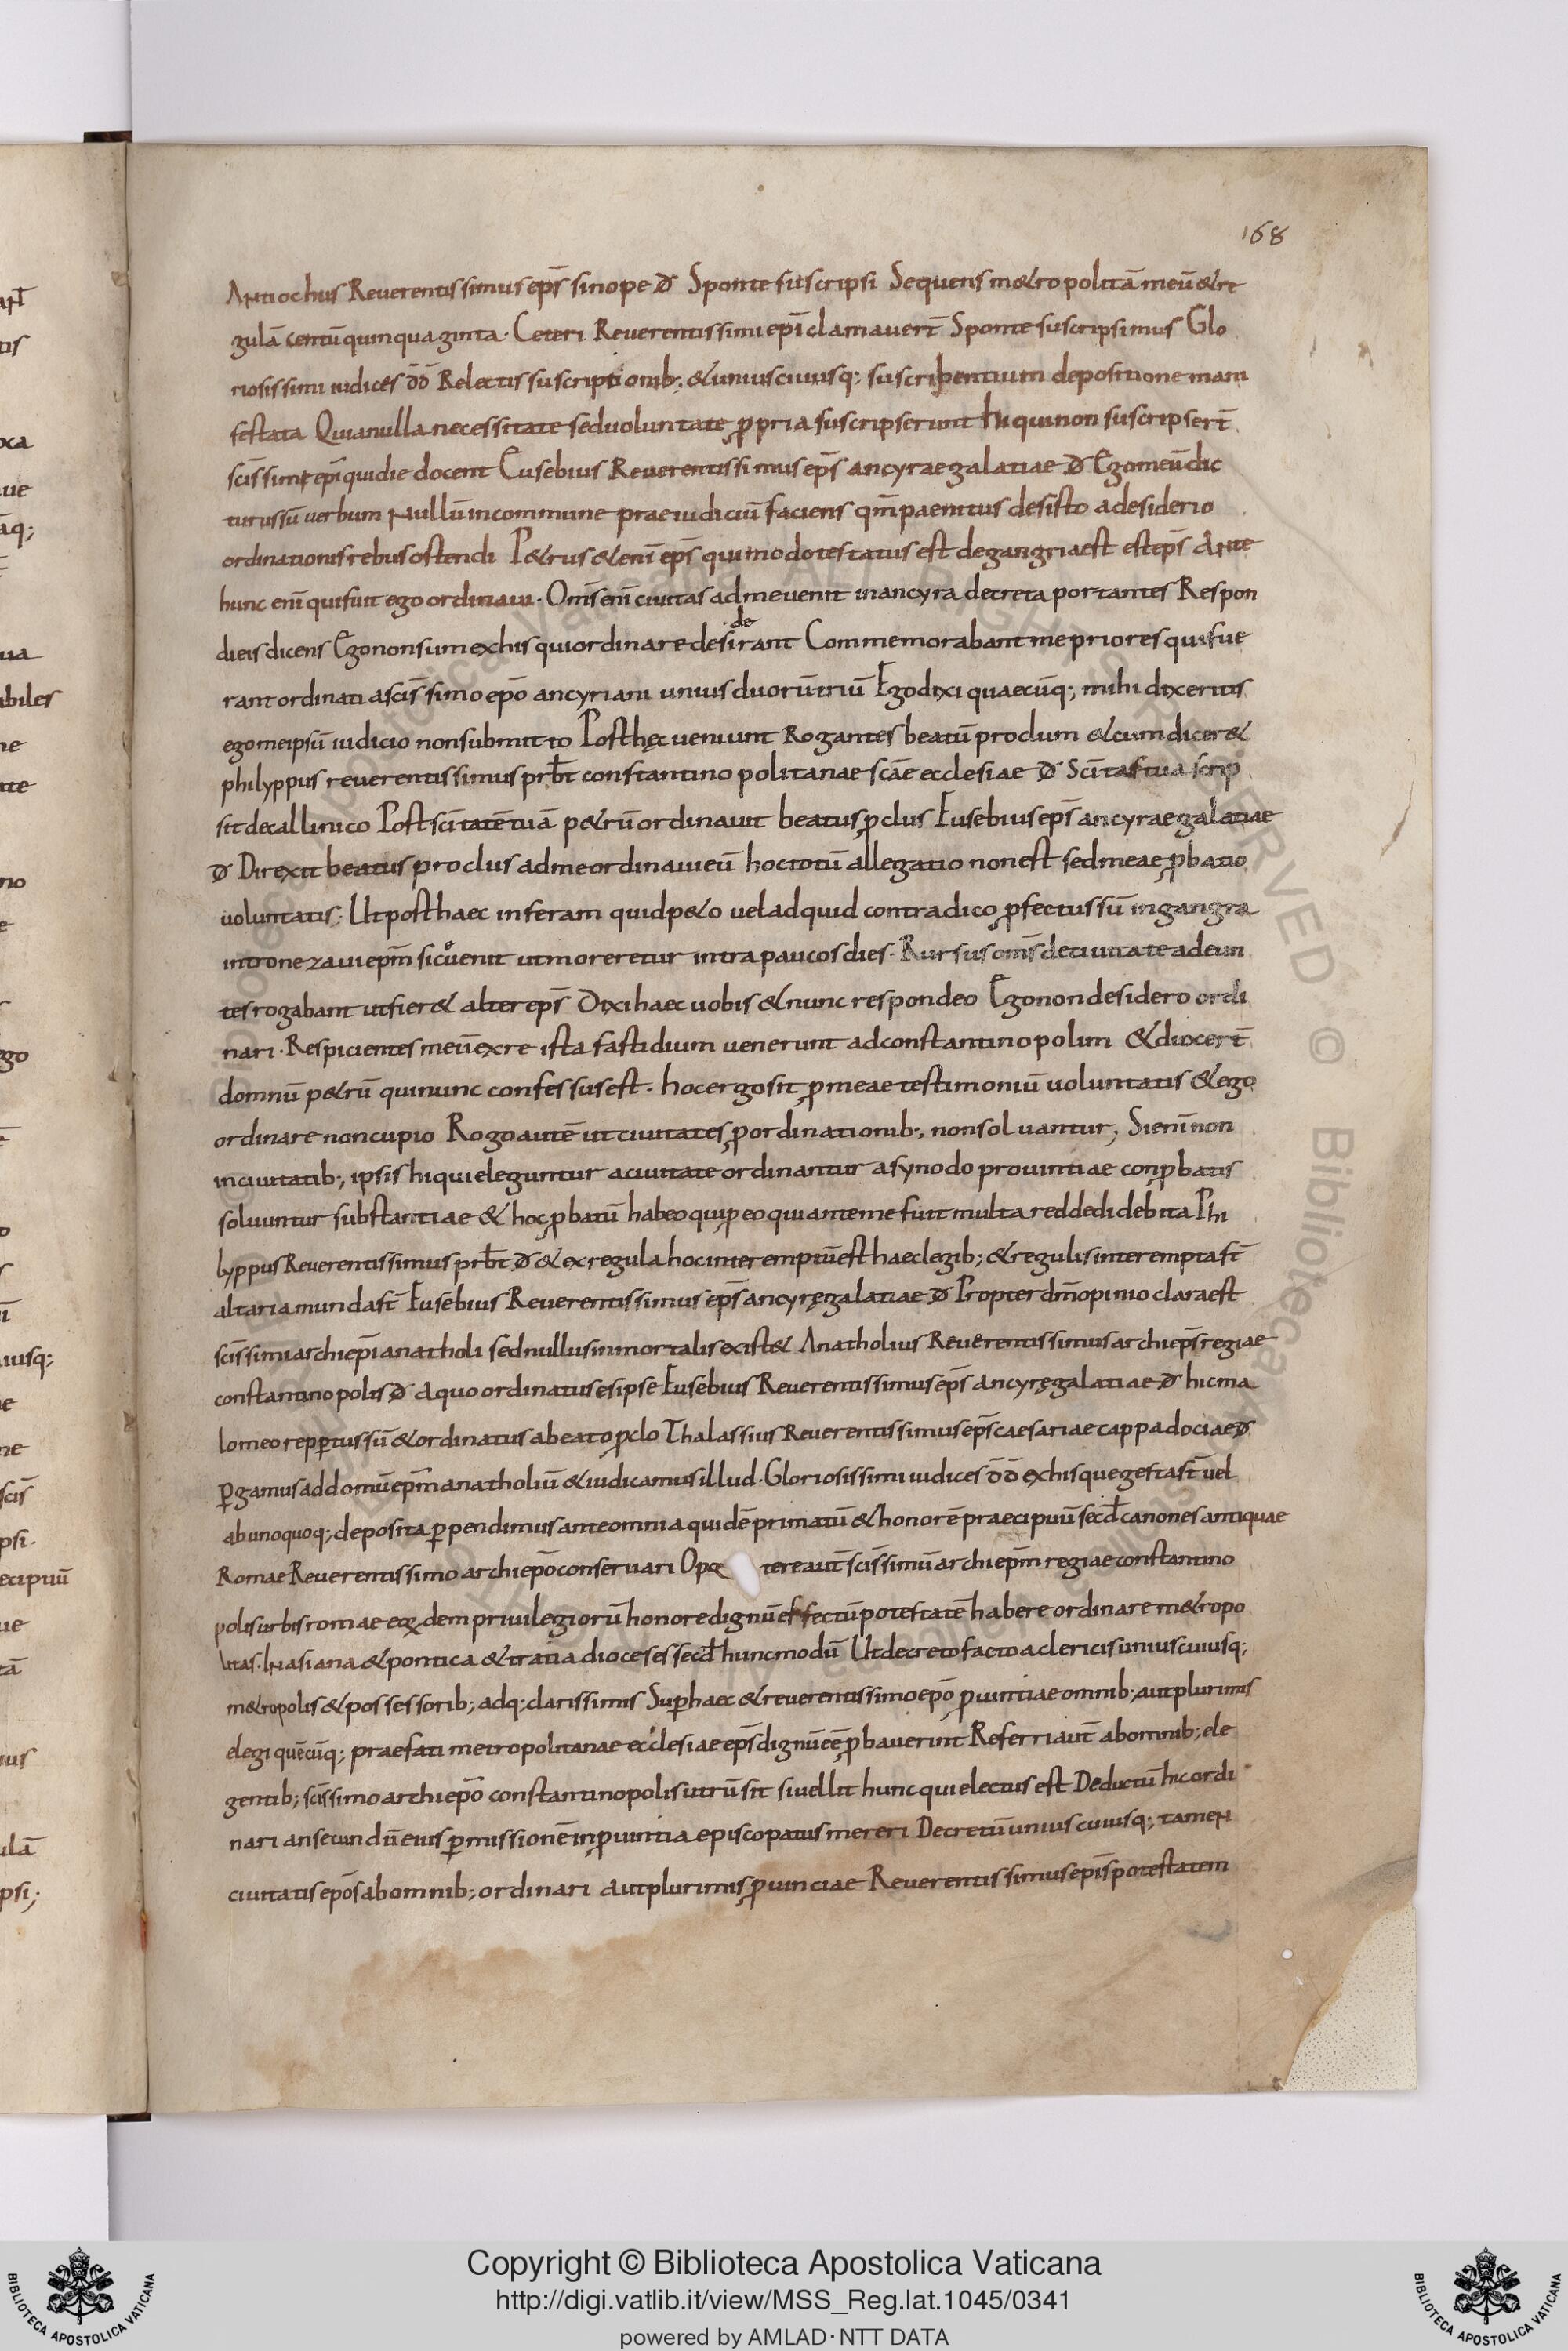 168
Antiochus Reverentissimus ep̄s sinope đ Sponte suscripsi Sequens m&ropolitā meū & re
gulā centū quinquaginta · Ceteri Reverentissimi ep̄i clamauer̄t Sponte suscripsimus Glo
riosissimi iudices d̄d̄ Relectis suscriptionib; & uniuscuiusq; suscribentium depositione mani
festata Quia nulla necessitate sed uoluntate ꝓpria suscripserunt hi qui non suscripser̄t
sc̄issimi ep̄i quidie docent Eusebius Reverentissimus ep̄s ancyrae galatiae đ Ego meū dic
turus sū uerbum Nullū incommune praeiudiciū faciens qm̄ paenitus desisto a desiderio
ordinationis rebus ostendi P&rus &eni ep̄s qui modo testatus est de gangria est est ep̄s Ante
hunc eni qui fuit ego ordinaui · Om̄s eni ciuitas ad me uenit in ancyra decreta portantes Respon
di eis dicens Ego non sum ex his qui ordinare desirant Commemorabant me priores qui fue
de
rant ordinati a sc̄issimo ep̄o ancyriani unius duorū triū Ego dixi quaecūq; mihi dixeritis
ego me ipsū iudicio non submitto Post hęc ueniunt Rogantes beatū proclum & cum dicer&
philyppus reverentissimus prb̄t constantinopolitanae sc̄ae ecclesiae đ Sc̄itas tua scrip
sit de callinico Post sc̄itatē tuā p&rū ordinauit beatus ꝓclus Eusebius ep̄s ancyrae galatiae
đ Direxit beatus proclus ad me ordinaui eū hoc totū allegatio non est sed meae ꝓbatio
uoluntatis · Ut post haec inferam quid p&o uel ad quid contradico ꝓfectus sū in gangra
intronezaui ep̄m sic uenit ut moreretur intra paucos dies · Rursus om̄s de ciuitate adeun
tes rogabant ut fier& alter ep̄s Dixi haec uobis & nunc respondeo Ego non desidero ordi
nari · Respicientes meū ex re ista fastidium uenerunt ad constantinopolim & duxer̄t
domnū p&rū qui nunc confessus est · hoc ergo sit ꝓ meae testimoniū uoluntatis & ego
ordinare non cupio Rogo autē ut ciuitates ꝓ ordinationib; non soluantur; Si eni non
in ciuitatib; ipsis hi qui eleguntur a ciuitate ordinantur a synodo prouintiae conꝓbatis
soluuntur substantiae & hoc ꝓbatū habeo quip eo qui ante me fuit multa reddedi debita Phi
lyppus Reverentissimus prb̄t đ & ex regula hoc interemptū est haec legib; & regulis interempta st̄
altaria munda st̄ Eusebius Reverentissimus ep̄s ancyrę galatiae đ Propter dm̄ opinio clara est
sc̄issimi archiep̄i anatholi sed nullus inmortalis exist& Anatholius Reverentissimus archiep̄s regiae
constantinopolis đ A quo ordinatus es ipse Eusebius Reverentissimus ep̄s ancyrę galatiae đ hic ma
lo meo reppertus sū & ordinatus a beato ꝓclo Thalassius Reverentissimus ep̄s caesariae cappadociae đ
ꝑgamus ad domū ep̄m anatholiū & iudicamus illud · Gloriosissimi iudices d̄d̄ ex his que gesta st̄ uel
ab uno quoq; deposita ꝑpendimus ante omnia quidē primatū & honorē praecipuū secd̄ canones antiquae
Romae Reverentissimo archiep̄o conseruari Opor tere aut̄ sc̄issimū archiep̄m regiae constantino
polis urbis romae eorundem priuilegiorū honore dignū effectū potestatē habere ordinare m&ropo
litas · In asiana & pontica & tratia dioceses secd̄ hunc modū Ut decreto facto a clericis uniuscuiusq;
m&ropolis & possessorib; adq; clarissimis Suꝑ haec & reverentissimo ep̄o ꝓuintiae omnib; aut plurimis
elegi quēcūq; praefati metropolitanae ecclesiae ep̄s dignū eē ꝓbauerint Referri aut̄ ab omnib; ele
gentib; sc̄issimo archiep̄o constantinopolis utrū sit siuellit hunc qui electus est Deductū hic ordi
nari an secundū eius ꝑmissionē in ꝓuintia episcopatus mereri Decretū uniuscuiusq; tamen
ciuitatis ep̄os ab omnib; ordinari aut plurimis ꝓuinciae Reverentissimus ep̄is potestatem
Copyright © Biblioteca Apostolica Vaticana
http://digi.vatlib.it/view/MSS_Reg.lat.1045/0341
powered by AMLAD·NTT DATA
BIBLIOTECA APOSTOLICA VATICANA
BIBLIOTECA APOSTOLICA VATICANA